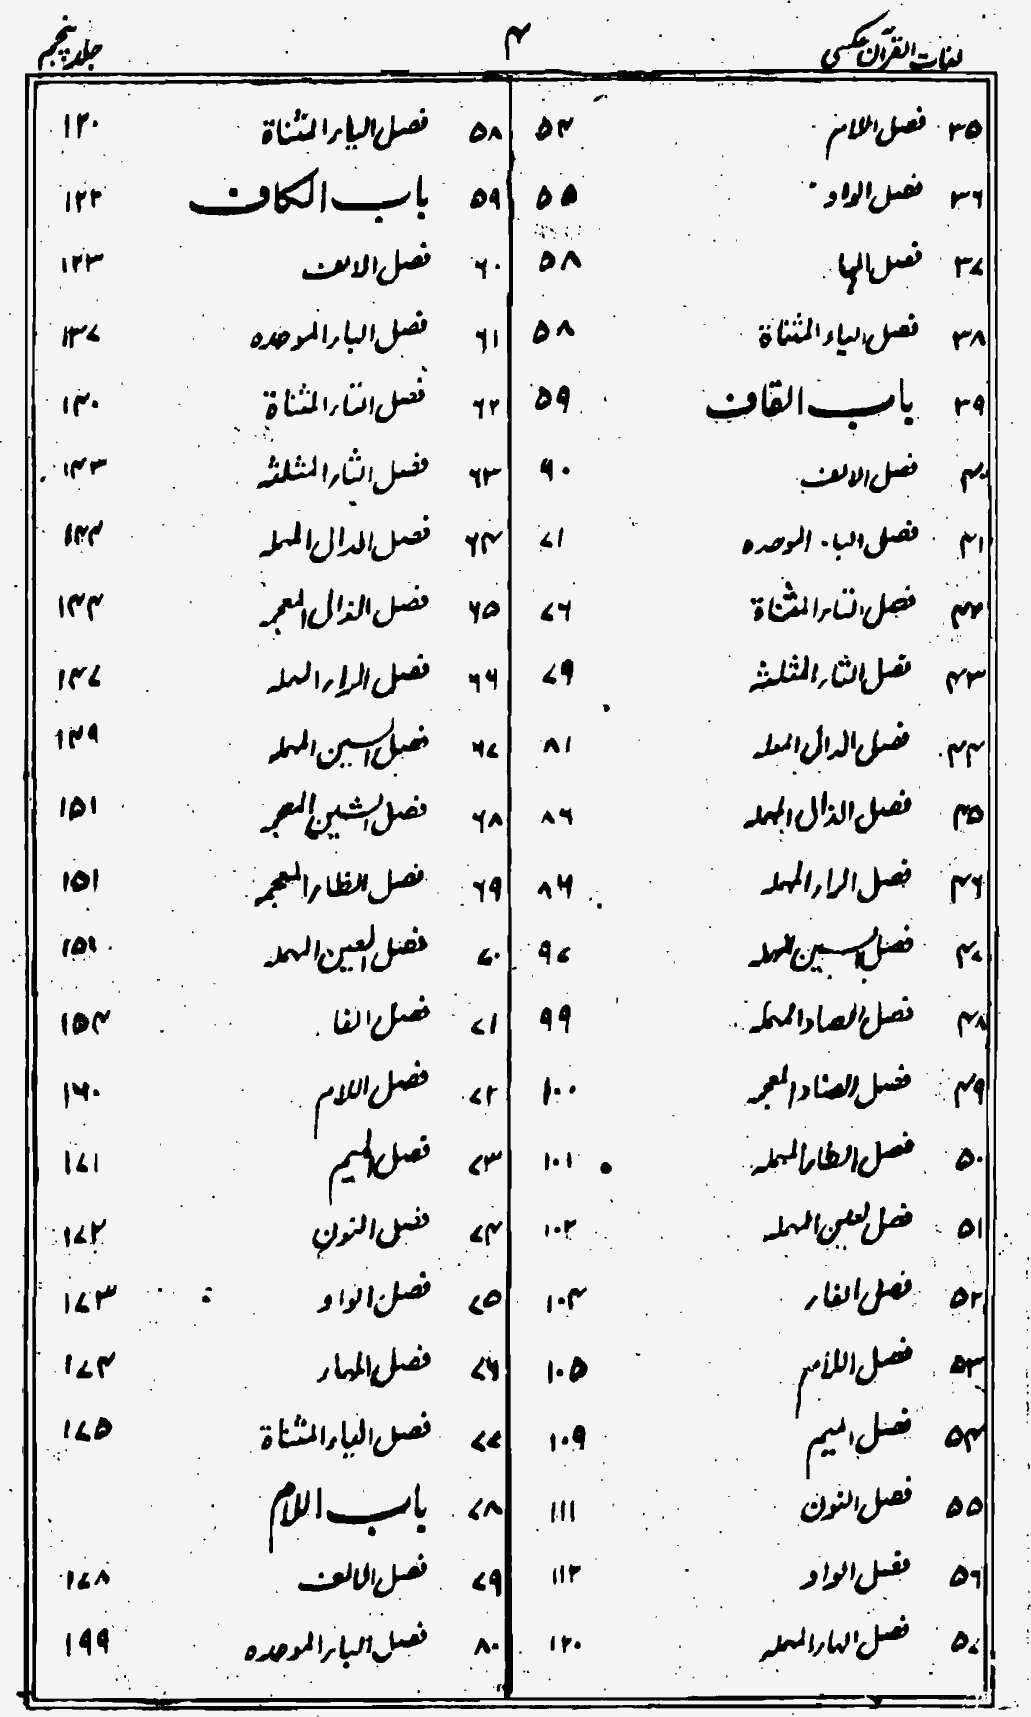 لغات القرآن عکسی ۴ جلد پنجم
۳۵ فصل اللام ۵۴
۳۶ فصل الواو ۵۵
۳۷ فصل الہا ۵۸
۳۸ فصل الیاء المثناة ۵۸
۳۹ باب القاف ۵۹
۴۰ فصل الالف ۶۰
۴۱ فصل الباء الموحدہ ۷۱
۴۲ فصل التاء المثناة ۷۶
۴۳ فصل الثاء المثلثہ ۷۹
۴۴ فصل الدال المہملہ ۸۱
۴۵ فصل الذال المہملہ ۸۶
۴۶ فصل الراء المہملہ ۸۶
۴۷ فصل السین المہملہ ۹۷
۴۸ فصل الصاد المہملہ ۹۹
۴۹ فصل الضاد المعجمہ ۱۰۰
۵۰ فصل الطاء المہملہ ۱۰۱
۵۱ فصل العین المہملہ ۱۰۲
۵۲ فصل الفاء ۱۰۴
۵۳ فصل اللام ۱۰۵
۵۴ فصل المیم ۱۰۹
۵۵ فصل النون ۱۱۱
۵۶ فصل الواو ۱۱۲
۵۷ فصل الہاء المہملہ ۱۲۰
۵۸ فصل الیاء المثناة ۱۲۰
۵۹ باب الکاف ۱۲۲
۶۰ فصل الالف ۱۲۳
۶۱ فصل الباء الموحدہ ۱۳۷
۶۲ فصل التاء المثناة ۱۴۰
۶۳ فصل الثاء المثلثہ ۱۴۳
۶۴ فصل الدال المہملہ ۱۴۴
۶۵ فصل الذال المعجمہ ۱۴۴
۶۶ فصل الراء المہملہ ۱۴۷
۶۷ فصل السین المہملہ ۱۴۹
۶۸ فصل الشین المعجمہ ۱۵۱
۶۹ فصل الظاء المعجمہ ۱۵۱
۷۰ فصل العین المہملہ ۱۵۱
۷۱ فصل الفا ۱۵۴
۷۲ فصل اللام ۱۶۰
۷۳ فصل المیم ۱۷۱
۷۴ فصل النون ۱۷۲
۷۵ فصل الواو ۱۷۳
۷۶ فصل الہاء ۱۷۴
۷۷ فصل الیاء المثناة ۱۷۵
۷۸ باب اللام
۷۹ فصل الالف ۱۷۸
۸۰ فصل الباء الموحدہ ۱۹۹